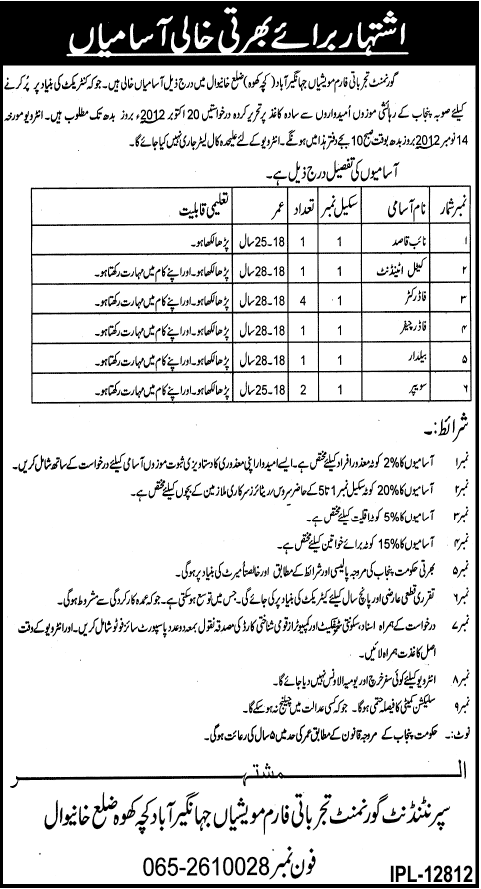 اشتہار برائے بھرتی خالی آسامیاں
گورنمنٹ تجرباتی فارم مویشیاں جہانگیر آباد (کچہ کھوہ) ضلع خانیوال میں درج ذیل آسامیاں خالی ہیں۔ جو کہ کنٹریکٹ کی بنیاد پر پُر کرنے
کیلئے صوبہ پنجاب کے رہائشی موزوں اُمیدواروں سے سادہ کاغذ پر تحریر کردہ درخواستیں 20 اکتوبر 2012ء بروز بدھ تک مطلوب ہیں۔ انٹرویو مورخہ
14 نومبر 2012 بروز بدھ بوقت صبح 10 بجے دفتر ہذا میں ہونگے۔ انٹرویو کے لئے علیحدہ کال لیٹر جاری نہیں کیا جائے گا۔
آسامیوں کی تفصیل درج ذیل ہے۔
نمبر شمار نام آسامی سکیل نمبر تعداد عمر تعلیمی قابلیت
۱ نائب قاصد 1 1 18-25 سال پڑھا لکھا ہو۔
۲ کیٹل اٹینڈنٹ 1 1 18-28 سال پڑھا لکھا ہو۔ اور اپنے کام میں مہارت رکھتا ہو۔
۳ فاڈر کٹر 1 4 18-28 سال پڑھا لکھا ہو۔ اور اپنے کام میں مہارت رکھتا ہو۔
۴ فاڈر چیفر 1 1 18-28 سال پڑھا لکھا ہو۔ اور اپنے کام میں مہارت رکھتا ہو۔
۵ بیلدار 1 1 18-28 سال پڑھا لکھا ہو۔ اور اپنے کام میں مہارت رکھتا ہو۔
۶ سویپر 1 2 18-25 سال پڑھا لکھا ہو۔ اور اپنے کام میں مہارت رکھتا ہو۔
شرائط:۔
نمبر۱ آسامیوں کا 2% کوٹہ معذور افراد کیلئے مختص ہے۔ ایسے امیدوار اپنی معذوری کا دستاویزی ثبوت موزوں آسامی کیلئے درخواست کے ساتھ شامل کریں۔
نمبر۲ آسامیوں کا 20% کوٹہ سکیل نمبر 1 تا 5 کے حاضر سروس ریٹائرڈ سرکاری ملازمین کے بچوں کیلئے مختص ہے۔
نمبر۳ آسامیوں کا 5% کوٹہ اقلیت کیلئے مختص ہے۔
نمبر۴ آسامیوں کا 15% کوٹہ برائے خواتین کیلئے مختص ہے۔
نمبر۵ بھرتی حکومت پنجاب کی مروجہ پالیسی اور شرائط کے مطابق اور خالصتاً میرٹ کی بنیاد پر ہوگی۔
نمبر۶ تقرری قطعی عارضی اور پانچ سال کیلئے کنٹریکٹ کی بنیاد پر کی جائے گی۔ جس میں توسیع ہو سکتی ہے۔ جو کہ عمدہ کارکردگی سے مشروط ہوگی۔
نمبر۷ درخواست کے ہمراہ اسناد سکونتی سرٹیفکیٹ اور کمپیوٹرائز قومی شناختی کارڈ کی مصدقہ نقول بمعہ دو عدد پاسپورٹ سائز فوٹو شامل کریں۔ اور انٹرویو کے وقت
اصل کاغذات ہمراہ لائیں۔
نمبر۸ انٹرویو کیلئے کوئی سفر خرچ اور یومیہ الاؤنس نہیں دیا جائے گا۔
نمبر۹ سلیکشن کمیٹی کا فیصلہ حتمی ہوگا۔ جو کہ کسی عدالت میں چیلنج نہ ہو سکے گا۔
نوٹ:۔ حکومت پنجاب کے مروجہ قانون کے مطابق عمر کی حد میں ۵ سال کی رعائت ہوگی۔
المشتہر
سپرنٹنڈنٹ گورنمنٹ تجرباتی فارم مویشیاں جہانگیر آباد کچہ کھوہ ضلع خانیوال
فون نمبر 065-2610028
IPL-12812